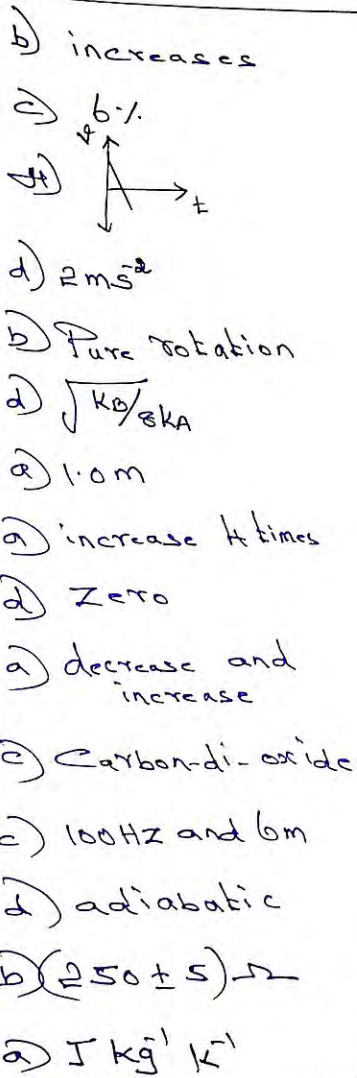 b) increases
c) 6%
v
a) t
d) 2ms⁻²
b) Pure rotation
d) √KB/8KA
a) 1.0m
a) increase 4 times
d) Zero
a) decrease and
increase
c) Carbon-di-oxide
c) 100HZ and 6m
d) adiabatic
b) (250 ± 5) Ω
a) J kg⁻¹ K⁻¹